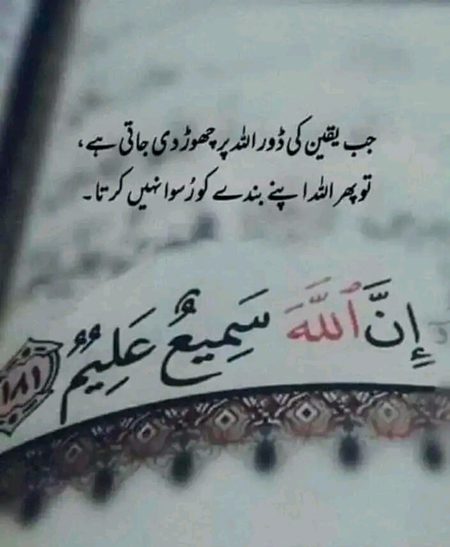 جب یقین کی ڈور اللہ پر چھوڑ دی جاتی ہے،
تو پھر اللہ اپنے بندے کو رُسوا نہیں کرتا۔
إِنَّ ٱللَّهَ سَمِيعٌ عَلِيمٌ ١٨١